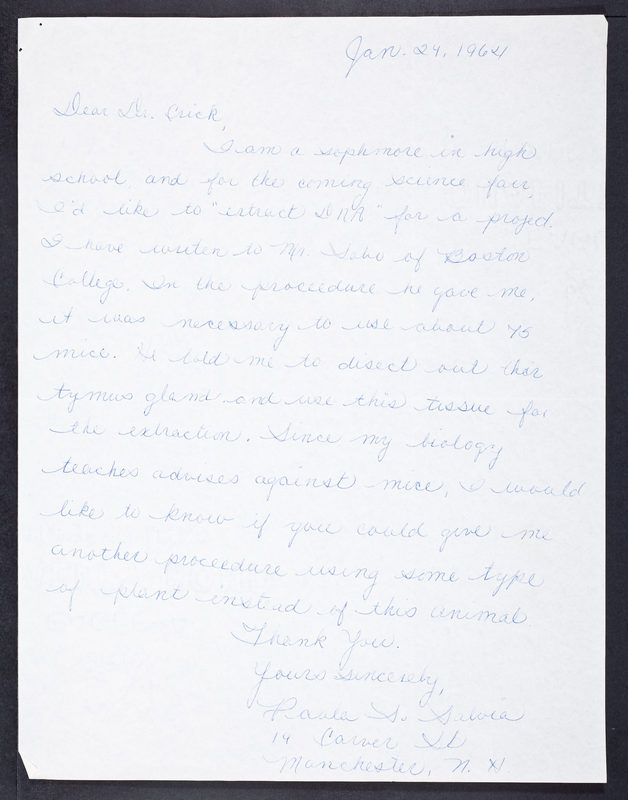 Jan. 24, 1964
Dear Dr. Crick,
I am a sophmore in high
school, and for the coming science fair,
I'd like to "extract DNA" for a project.
I have writen to Mr. of Boston
College. In the proceedure he gave me,
it was necessary to use about 75
mice. He told me to disect out thir
tymus gland and use this tissue for
the extraction. Since my biology
teaches advises against mice, I would
like to know if you could give me
another proceedure using some type
of plant instead of this animal.
Thank You.
Yours sincerely,
Paula S. Salvia
14 Carver St
Manchester, N. H.